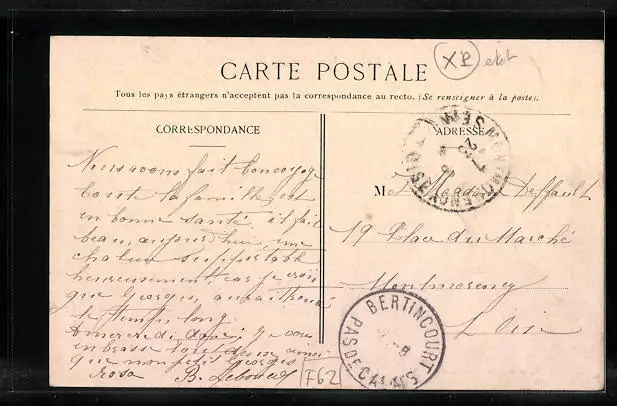 XP
CARTE POSTALE
Tous les pays étrangers n'acceptent pas la correspondance au recto. (Se renseigner à la poste).
CORRESPONDANCE
ADRESSE
Nous avons fait bon voyage
toute la famille est
en bonne santé il fait
beau aujourd'hui une
chaleur supportable
heureusement car je crois
que Georges aurait trouvé
le temps long
je vous
embrasse tous deux ainsi
que mon petit Georges
Rosa B.
M et Madame Deffault
19 Place du Marché
Montmorency
S. Oise
MONTMORENCY
SEINE-ET-OISE
BERTINCOURT
PAS DE CALAIS
F62